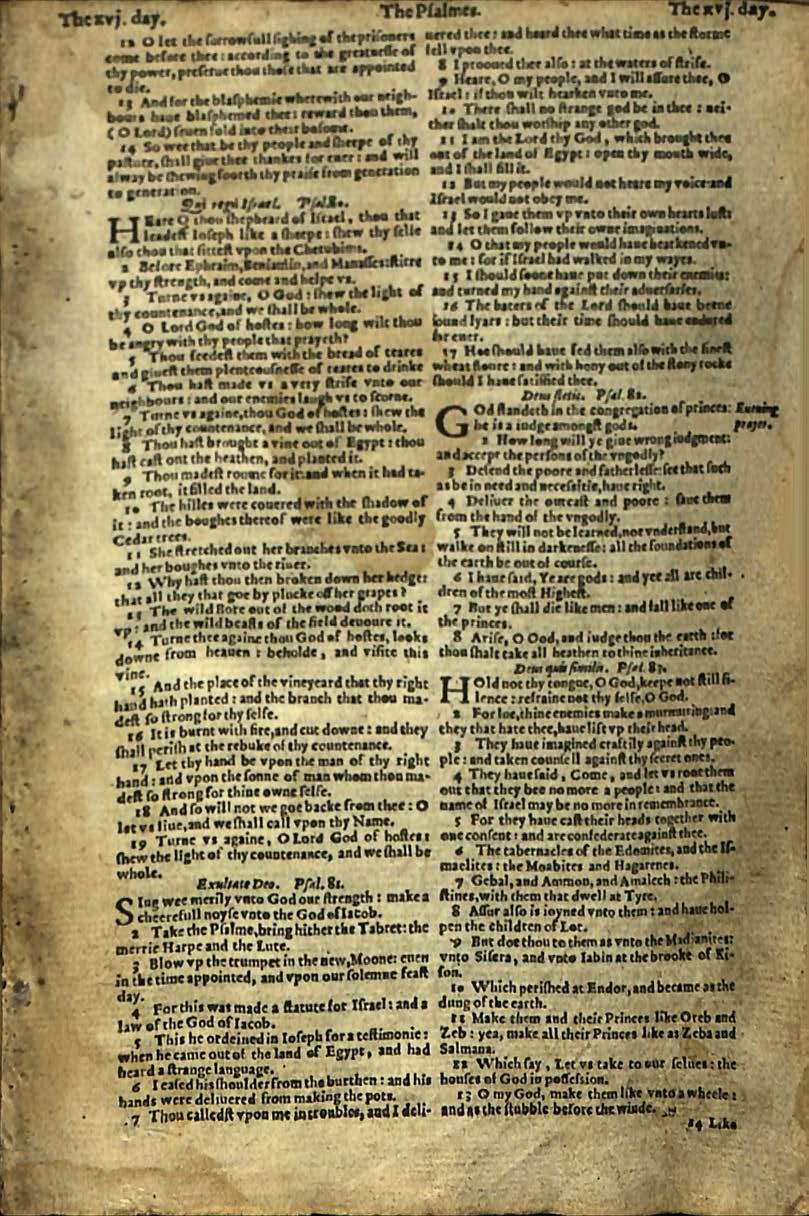 The xvj. day.
The Psalmes.
The xvj. day.
12 O let the sorrowfull sighing of the prisoners
come before thee: according to the greatnesse of
thy power, preserue thou those that are appointed
to die.
13 And for the blasphemie wherewith our neigh-
bours haue blasphemed thee: reward thou them,
(O Lord) seuen fold into their bosome.
14 So wee that be thy people and sheepe of thy
pasture, shall giue thee thankes for euer: and will
alway be shewing foorth thy praise from generation
to generation.
Qui regis Israel. Psal.80.
HEare O thou shepheard of Israel, thou that
leadest Ioseph like a sheepe: shew thy selfe
also thou that sittest vpon the Cherubims.
2 Before Ephraim, Beniamin, and Manasses: stirre
vp thy strength, and come and helpe vs.
3 Turne vs againe, O God: shew the light of
thy countenance, and we shall be whole.
4 O Lord God of hostes: how long wilt thou
be angry with thy people that prayeth?
5 Thou feedest them with the bread of teares
and giuest them plenteousnesse of teares to drinke
6 Thou hast made vs a very strife vnto our
neighbours: and our enemies laugh vs to scorne.
7 Turne vs againe, thou God of hostes: shew the
light of thy countenance, and we shall be whole.
8 Thou hast brought a vine out of Egypt: thou
hast cast ont the heathen, and planted it.
9 Thou madest roume for it: and when it had ta-
ken root, it filled the land.
10 The hilles were couered with the shadow of
it: and the boughes thereof were like the goodly
Cedar trees.
11 She stretched out her branches vnto the Sea:
and her boughes vnto the riuer.
12 Why hast thou then broken down her hedge:
that all they that goe by plucke off her grapes?
13 The wild Bore out of the wood doth root it
vp: and the wild beasts of the field deuoure it.
14 Turne thee againe thou God of hostes, looke
downe from heauen: beholde, and visite this
vine.
15 And the place of the vineyeard that thy right
hand hath planted: and the branch that thou ma-
dest so strong for thy selfe.
16 It is burnt with fire, and cut downe: and they
shall perish at the rebuke of thy countenance.
17 Let thy hand be vpon the man of thy right
hand: and vpon the sonne of man whom thou ma-
dest so strong for thine owne selfe.
18 And so will not we goe backe from thee: O
let vs liue, and we shall call vpon thy Name.
19 Turne vs againe, O Lord God of hostes:
shew the light of thy countenance, and we shall be
whole.
Exultate Deo. Psal.81.
SIng wee merily vnto God our strength: make a
cheerefull noyse vnto the God of Iacob.
2 Take the Psalme, bring hither the Tabret: the
merrie Harpe and the Lute.
3 Blow vp the trumpet in the new, Moone: euen
in the time appointed, and vpon our solemne feast
day.
4 For this was made a statute for Israel: and a
law of the God of Iacob.
5 This he ordeined in Ioseph for a testimonie:
when he came out of the land of Egypt, and had
heard a strange language.
6 I eased his shoulder from the burthen: and his
hands were deliuered from making the pots.
7 Thou calledst vpon me in troubles, and I deli-
uered thee: and heard thee what time as the storme
fell vpon thee.
8 I prooued thee also: at the waters of strife.
9 Heare, O my people, and I will assure thee, O
Israel: if thou wilt hearken vnto me.
10 There shall no strange god be in thee: nei-
ther shalt thou worship any other god.
11 I am the Lord thy God, which brought thee
out of the land of Egypt: open thy mouth wide,
and I shall fill it.
12 But my people would not heare my voice: and
Israel would not obey me.
13 So I gaue them vp vnto their own hearts lusts
and let them follow their owne imaginations.
14 O that my people would haue hearkened vn-
to me: for if Israel had walked in my wayes.
15 I should soone haue put down their enemies:
and turned my hand against their aduersaries.
16 The haters of the Lord should haue beene
found lyars: but their time should haue endured
for euer.
17 Hee should haue fed them also with the finest
wheat floure: and with hony out of the stony rocke
should I haue satisfied thee.
Deus stetit. Psal.82.
GOd standeth in the congregation of princes:
he is a iudge amongst gods.
Euening
prayer.
2 How long will ye giue wrong iudgment:
and accept the persons of the vngodly?
3 Defend the poore and fatherlesse: see that such
as be in need and necessitie, haue right.
4 Deliuer the outcast and poore: saue them
from the hand of the vngodly.
5 They will not be learned, not vnderstand, but
walke on still in darkenesse: all the foundations of
the earth be out of course.
6 I haue said, Ye are gods: and yee all are chil-
dren of the most Highest.
7 But ye shall die like men: and fall like one of
the princes.
8 Arise, O Ood, and iudge thou the earth: for
thou shalt take all heathen to thine inheritance.
Deus quis similis. Psal.83.
HOld not thy tongue, O God, keepe not still si-
lence: refraine not thy selfe, O God.
2 For loe, thine enemies make a murmuring: and
they that hate thee, haue lift vp their head.
3 They haue imagined craftily against thy peo-
ple: and taken counsell against thy secret ones.
4 They haue said, Come, and let vs root them
out that they bee no more a people: and that the
name of Israel may be no more in remembrance.
5 For they haue cast their heads together with
one consent: and are confederate against thee.
6 The tabernacles of the Edomites, and the Is-
maelites: the Moabites and Hagarenes.
7 Gebal, and Ammon, and Amalech: the Phili-
stines, with them that dwell at Tyre.
8 Assur also is ioyned vnto them: and haue hol-
pen the children of Lot.
9 But doe thou to them as vnto the Madianites:
vnto Sisera, and vnto Iabin at the brooke of Ki-
son.
10 Which perished at Endor, and became as the
dung of the earth.
11 Make them and their Princes like Oreb and
Zeb: yea, make all their Princes like as Zeba and
Salmana.
12 Which say, Let vs take to our selues: the
houses of God in possession.
13 O my God, make them like vnto a wheele:
and as the stubble before the winde.
14 Like